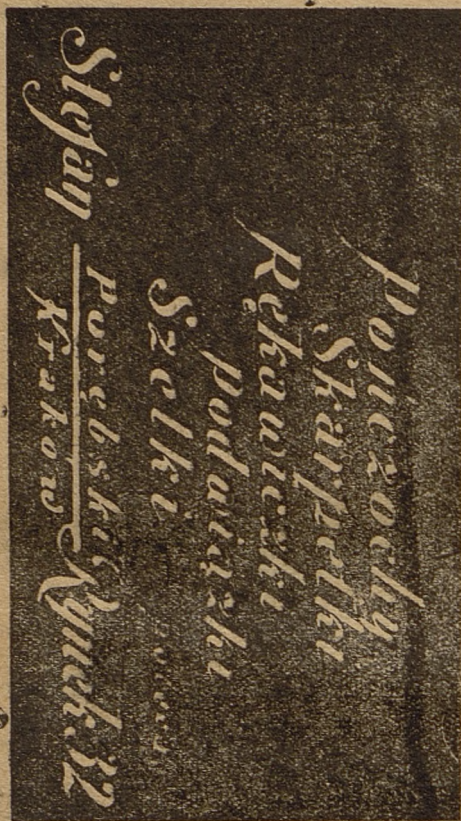 Pończochy
Skarpetki
Rękawiczki
Podwiązki
Szelki
Stefan Porębski
Kraków Rynek 32